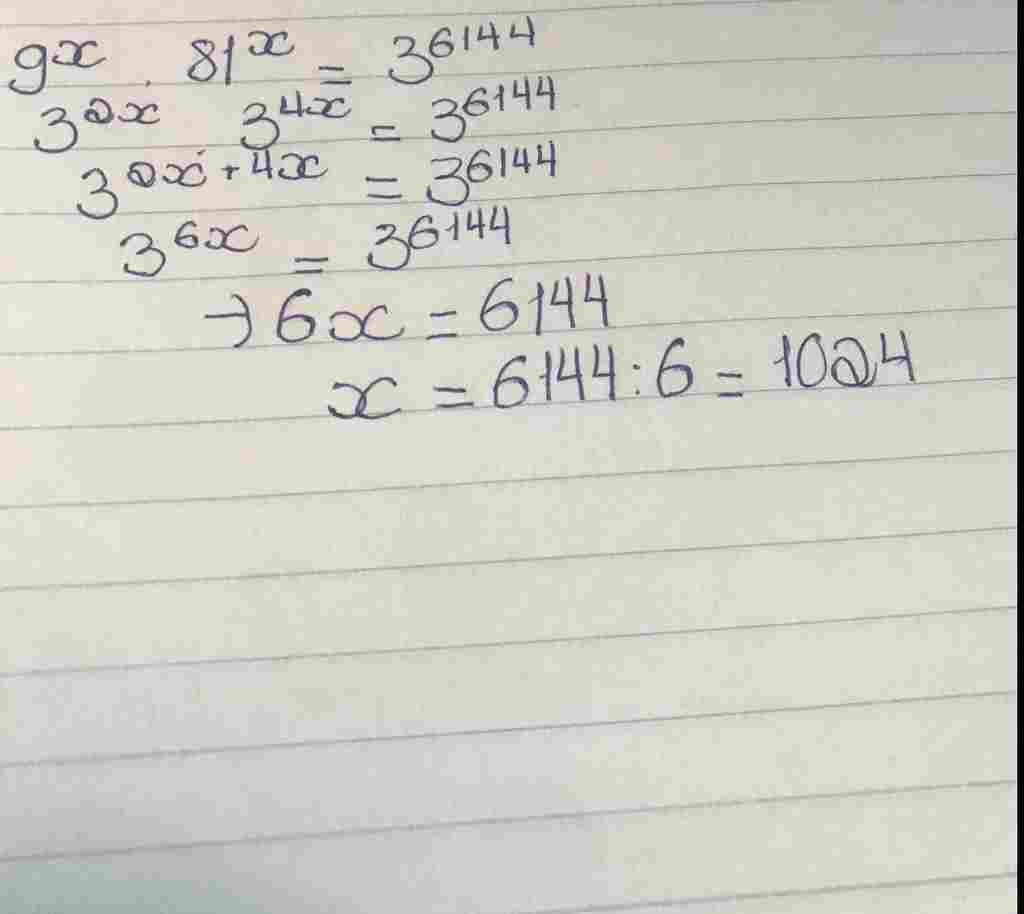 9^x . 81^x = 3^6144
3^2x 3^4x = 3^6144
3^2x + 4x = 3^6144
3^6x = 3^6144
→ 6x = 6144
x = 6144 : 6 = 1024